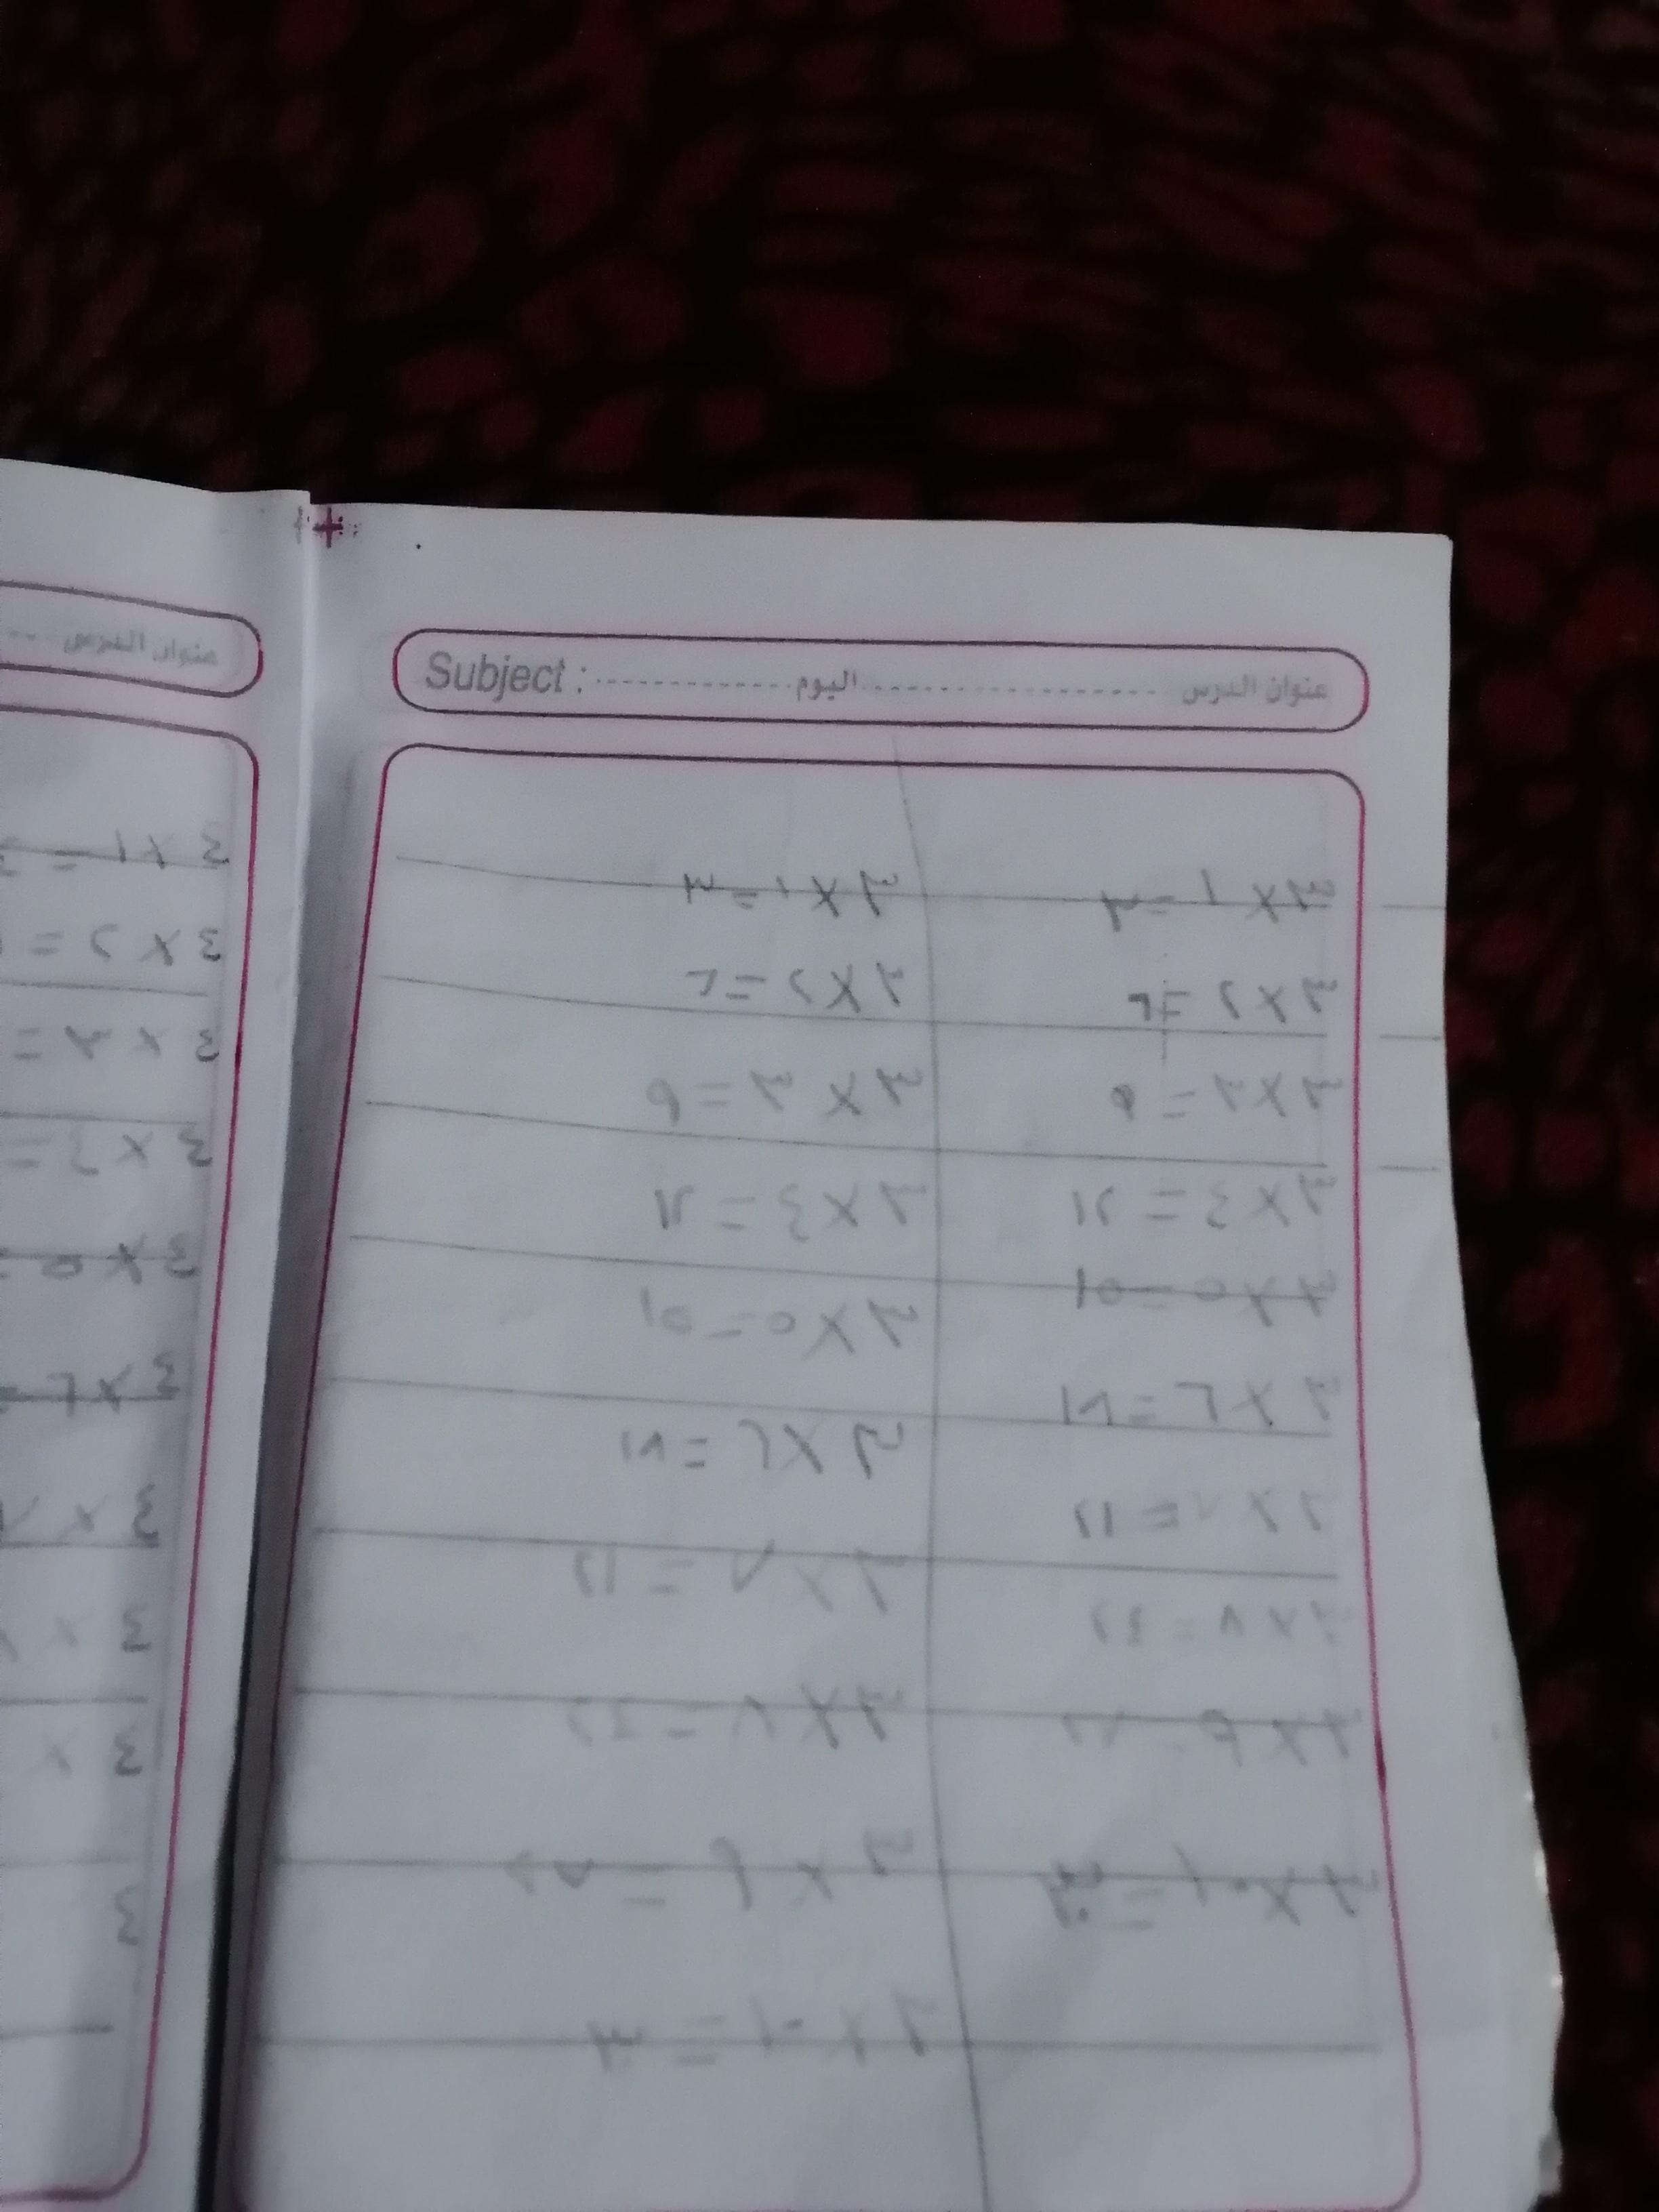 عنوان الدرس
اليوم
Subject :
٣ × ١ = ٣
٣ × ٢ = ٦
٣ × ٣ = ٩
٣ × ٤ = ١٢
٣ × ٥ = ١٥
٣ × ٦ = ١٨
٣ × ٧ = ٢١
٣ × ٨ = ٢٤
٣ × ٩ = ٢٧
٣ × ١٠ = ٣٠
٣ × ١ = ٣
٣ × ٢ = ٦
٣ × ٣ = ٩
٣ × ٤ = ١٢
٣ × ٥ = ١٥
٣ × ٦ = ١٨
٣ × ٧ = ٢١
٣ × ٨ = ٢٤
٣ × ٩ = ٢٧
٣ × ١٠ = ٣٠
عنوان الدرس
٤ × ١ =
٤ × ٢ =
٤ × ٣ =
٤ × ٤ =
٤ × ٥ =
٤ × ٦ =
٤ × ٧
٤ ×
٤ ×
٤